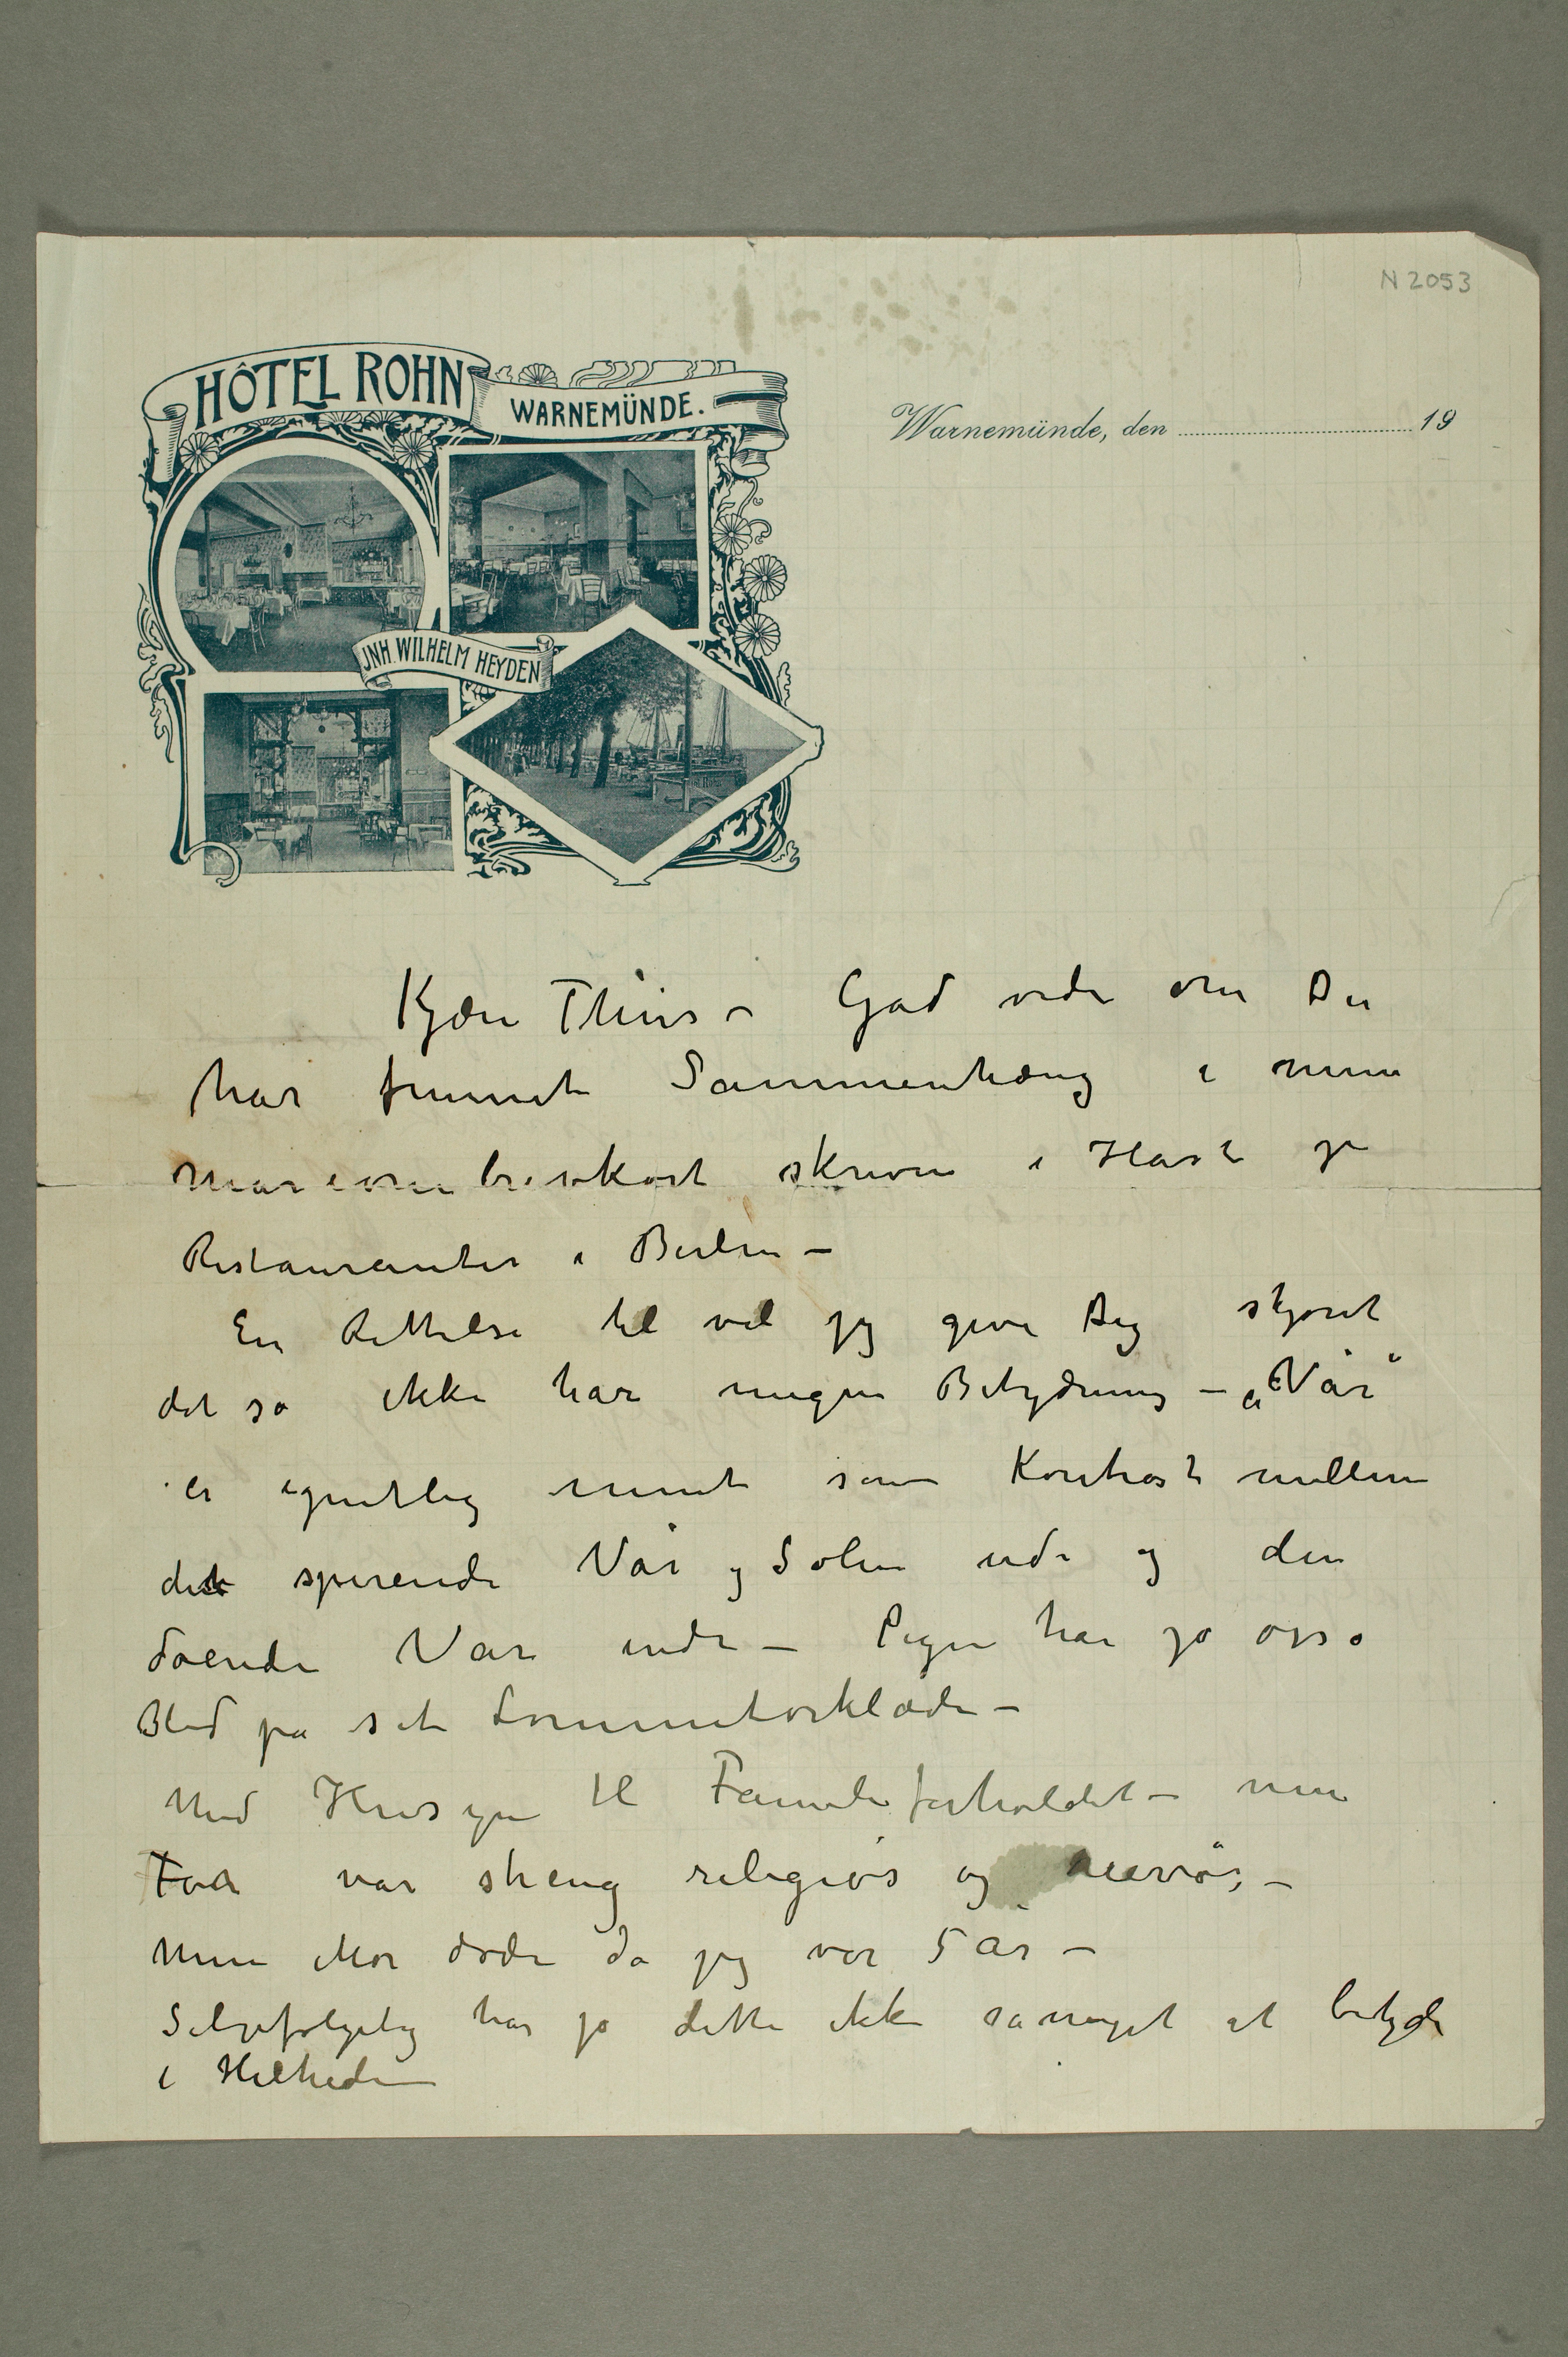 N 2053
HÔTEL ROHN
WARNEMÜNDE.
Warnemünde, den 19
JNH. WILHELM HEYDEN
Kjære Thiis – Gad vide om Du
har funnet Sammenhæng i mine
brevkort skrevne i Hast på
Restauranter i Berlin –
En Rettelse til vil jeg give Dig skjønt
det jo ikke har nogen Betydning – „Vår“
er egentlig ment som Kontrast mellem
det spirende Vår og Solen ude og den
døende Vår inde – Pigen har jo også
Blod på sit Lommetørklæde –
Med Hensyn til Familieforholdet – min
Far var streng religiøs og nervøs –
Min Mor døde da jeg var 5 år –
Selvfølgelig har jo dette ikke så meget at betyde
i Helheden